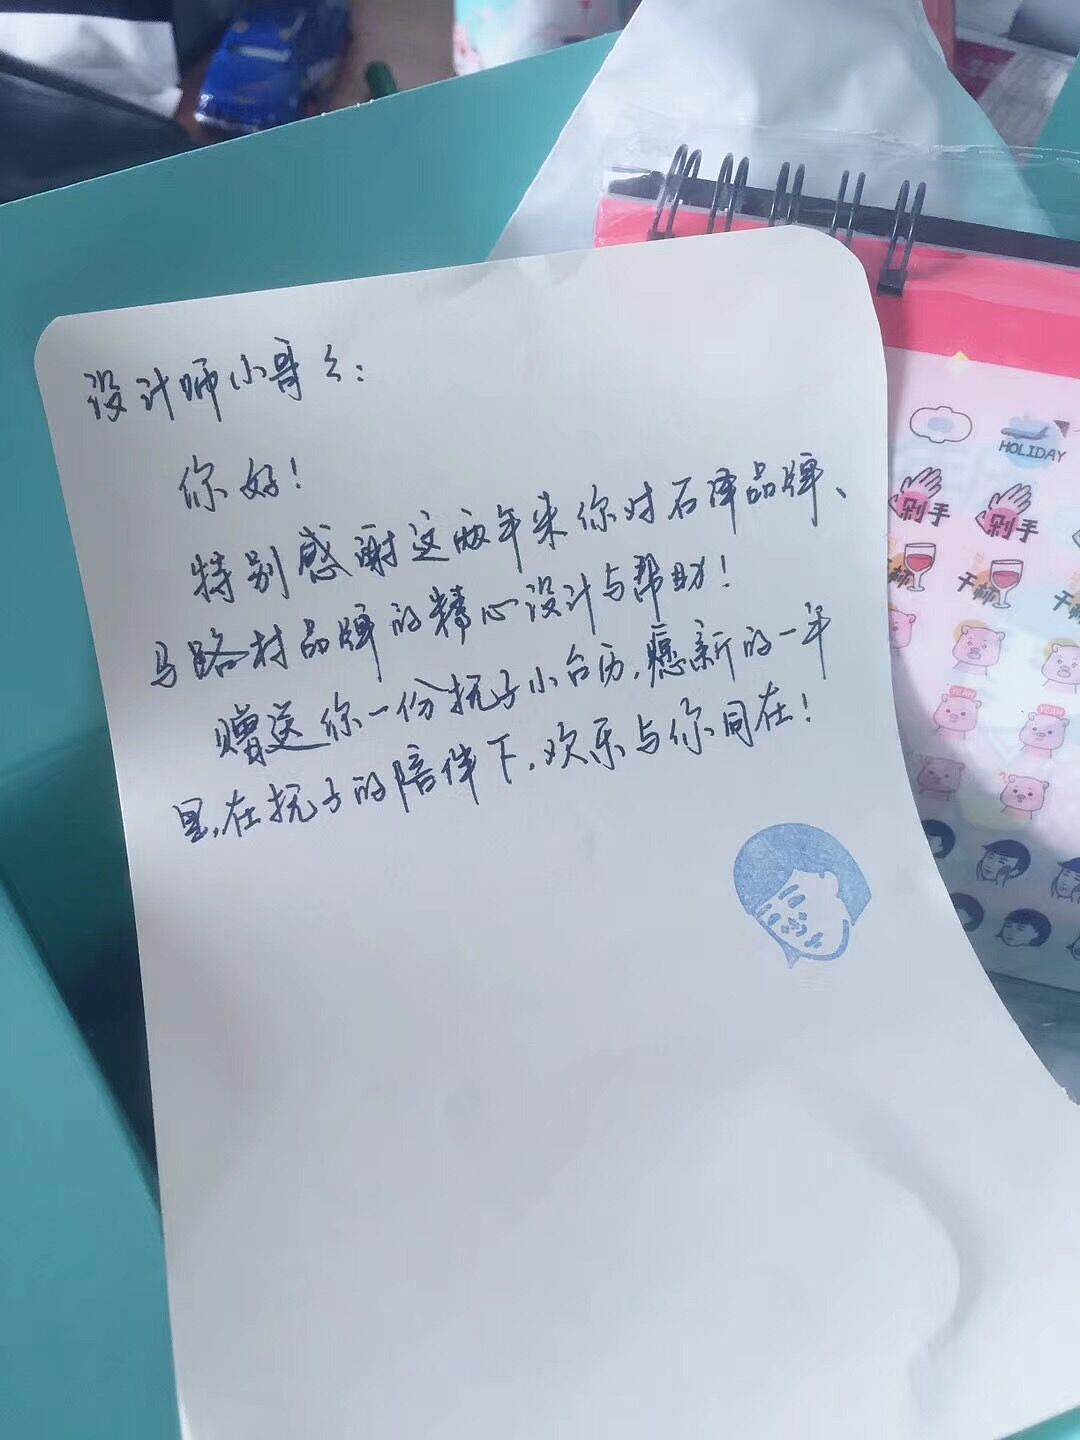 设计师小哥ミ:
你好!
特别感谢这两年来你对石泽品牌、
马路村品牌的精心设计与帮助!
赠送你一份抚子小台历,愿新的一年
里,在抚子的陪伴下,欢乐与你同在!
HOLIDAY
剁手 剁手
干杯 干杯 干
YEAH YEAH